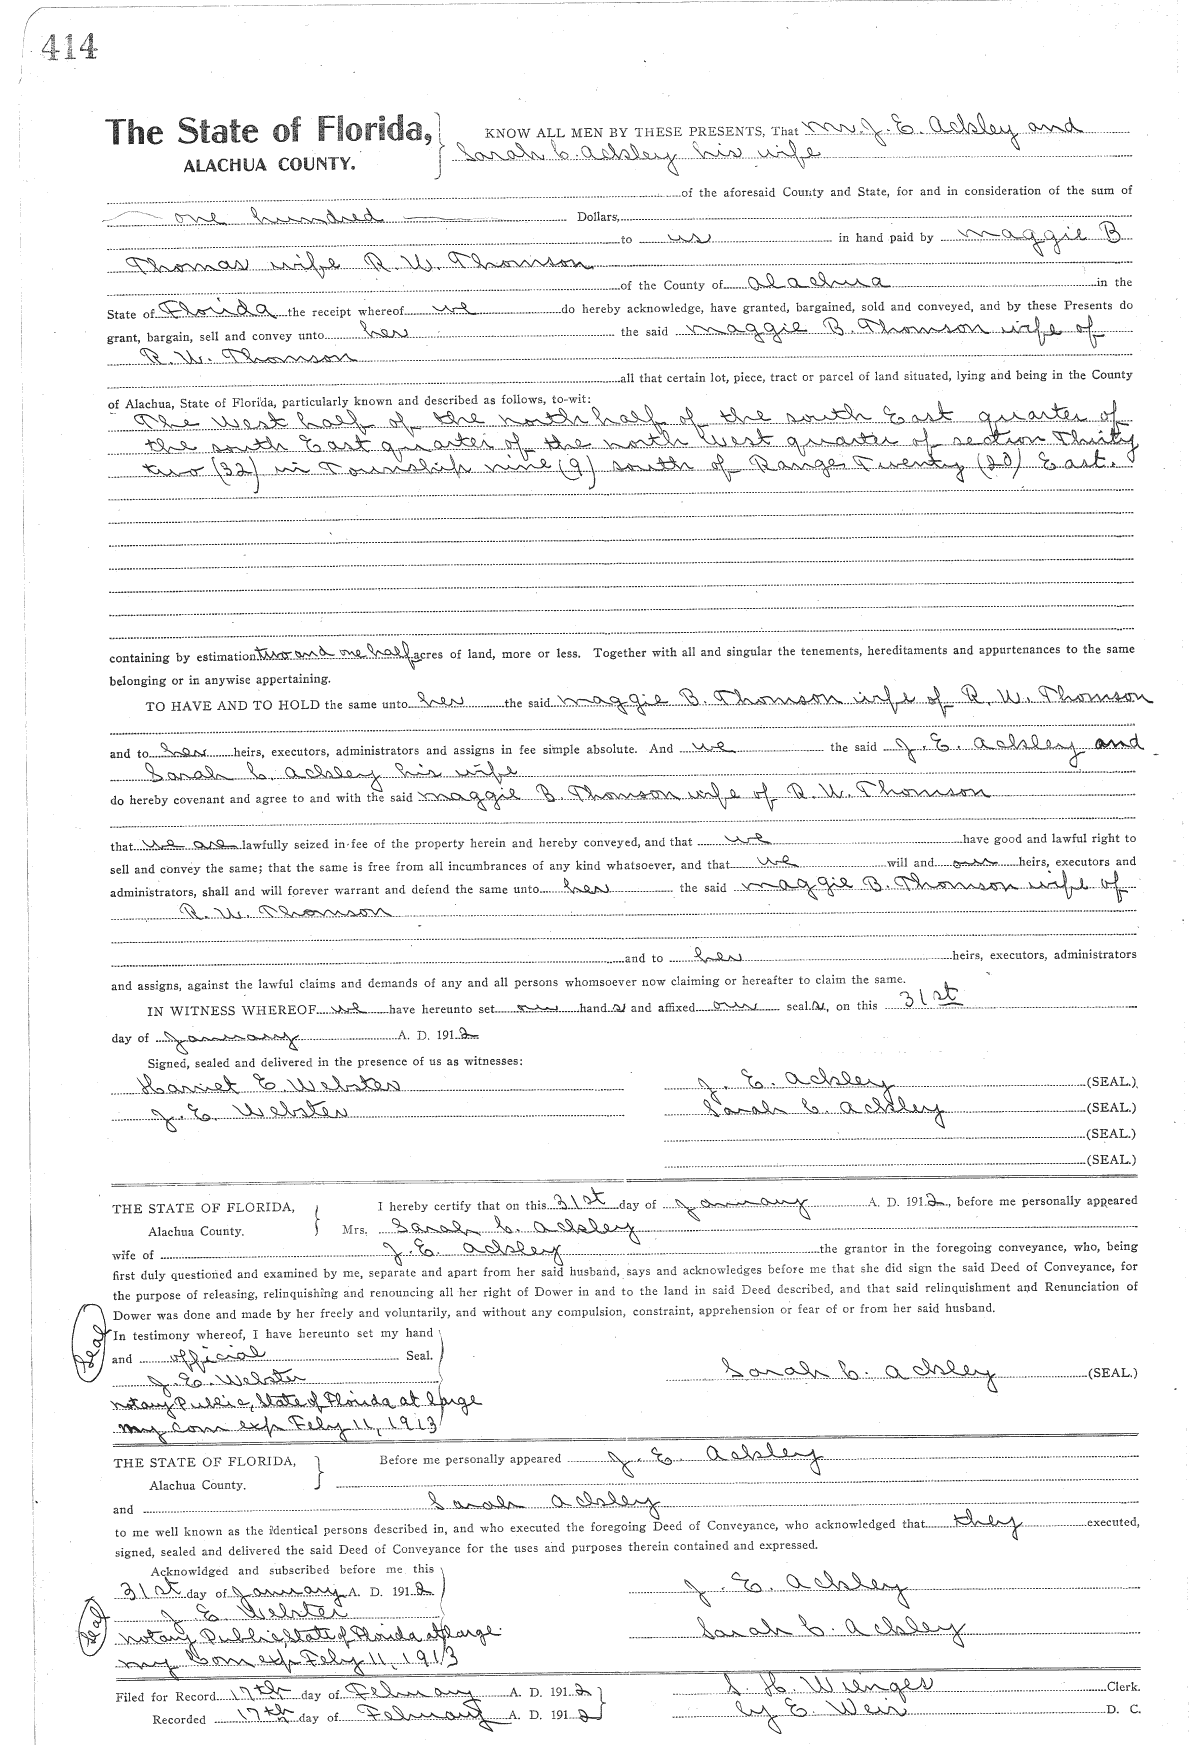 414
The State of Florida, KNOW ALL MEN BY THESE PRESENTS, That Mr. J. E. Ackley and
ALACHUA COUNTY. Sarah C. Ackley his wife
of the aforesaid County and State, for and in consideration of the sum of
one hundred Dollars,
to us in hand paid by Maggie B
Thomas wife R. W. Thomson
of the County of Alachua in the
State of Florida the receipt whereof we do hereby acknowledge, have granted, bargained, sold and conveyed, and by these Presents do
grant, bargain, sell and convey unto her the said Maggie B. Thomson wife of
R. W. Thomson
all that certain lot, piece, tract or parcel of land situated, lying and being in the County
of Alachua, State of Florida, particularly known and described as follows, to-wit:
The West half of the north half of the south East quarter of
the south East quarter of the north West quarter of section Thirty
two (32) in Township nine (9) south of Range Twenty (20) East.
containing by estimation two and one half acres of land, more or less. Together with all and singular the tenements, hereditaments and appurtenances to the same
belonging or in anywise appertaining.
TO HAVE AND TO HOLD the same unto her the said Maggie B. Thomson wife of R. W. Thomson
and to her heirs, executors, administrators and assigns in fee simple absolute. And we the said J. E. Ackley and
Sarah C. Ackley his wife
do hereby covenant and agree to and with the said Maggie B. Thomson wife of R. W. Thomson
that we are lawfully seized in fee of the property herein and hereby conveyed, and that we have good and lawful right to
sell and convey the same; that the same is free from all incumbrances of any kind whatsoever, and that we will and our heirs, executors and
administrators, shall and will forever warrant and defend the same unto her the said Maggie B. Thomson wife of
R. W. Thomson
and to her heirs, executors, administrators
and assigns, against the lawful claims and demands of any and all persons whomsoever now claiming or hereafter to claim the same.
IN WITNESS WHEREOF we have hereunto set our hand s and affixed our seal s, on this 31st
day of January A. D. 1912
Signed, sealed and delivered in the presence of us as witnesses:
Harriet E Webster J. E. Ackley (SEAL.)
J. E. Webster Sarah C. Ackley (SEAL.)
(SEAL.)
(SEAL.)
THE STATE OF FLORIDA, I hereby certify that on this 31st day of January A. D. 1912, before me personally appeared
Alachua County. Mrs. Sarah C. Ackley
wife of J. E. Ackley the grantor in the foregoing conveyance, who, being
first duly questioned and examined by me, separate and apart from her said husband, says and acknowledges before me that she did sign the said Deed of Conveyance, for
the purpose of releasing, relinquishing and renouncing all her right of Dower in and to the land in said Deed described, and that said relinquishment and Renunciation of
Dower was done and made by her freely and voluntarily, and without any compulsion, constraint, apprehension or fear of or from her said husband.
Seal
In testimony whereof, I have hereunto set my hand
and official Seal.
J. E. Webster Sarah C. Ackley (SEAL.)
Notary Public, State of Florida at large
my com exp Feby 11, 1913
THE STATE OF FLORIDA, Before me personally appeared J. E. Ackley
Alachua County.
and Sarah Ackley
to me well known as the identical persons described in, and who executed the foregoing Deed of Conveyance, who acknowledged that they executed,
signed, sealed and delivered the said Deed of Conveyance for the uses and purposes therein contained and expressed.
Acknowldged and subscribed before me this
31st day of January A. D. 1912 J. E. Ackley
Seal
J E Webster
Notary Public, State of Florida at large Sarah C. Ackley
my Com exp Feby 11, 1913
Filed for Record 17th day of February A. D. 1912 S. H. Wienges Clerk.
Recorded 17th day of February A. D. 1912 by E. Weir D. C.